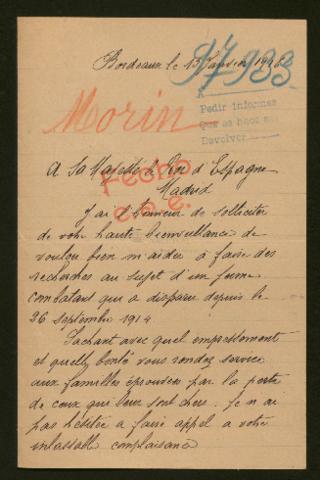 Bordeaux le 15 Janvier 1916
97933
Morin
A
Pedir informes
Que se hace en
Devolver
A Sa Majesté le Roi d'Espagne
Madrid
Fecho
J'ai l'honneur de solliciter
de votre haute bienveillance de
vouloir bien m'aider à faire des
recherches au sujet d'un jeune
combatant qui a disparu depuis le
26 septembre 1914
Sachant avec quel empressement
et quelle bonté vous rendez service
aux familles éprouvées par la perte
de ceux qui leur sont chers. Je n'ai
pas hésitée a faire appel a votre
inlassable complaisance